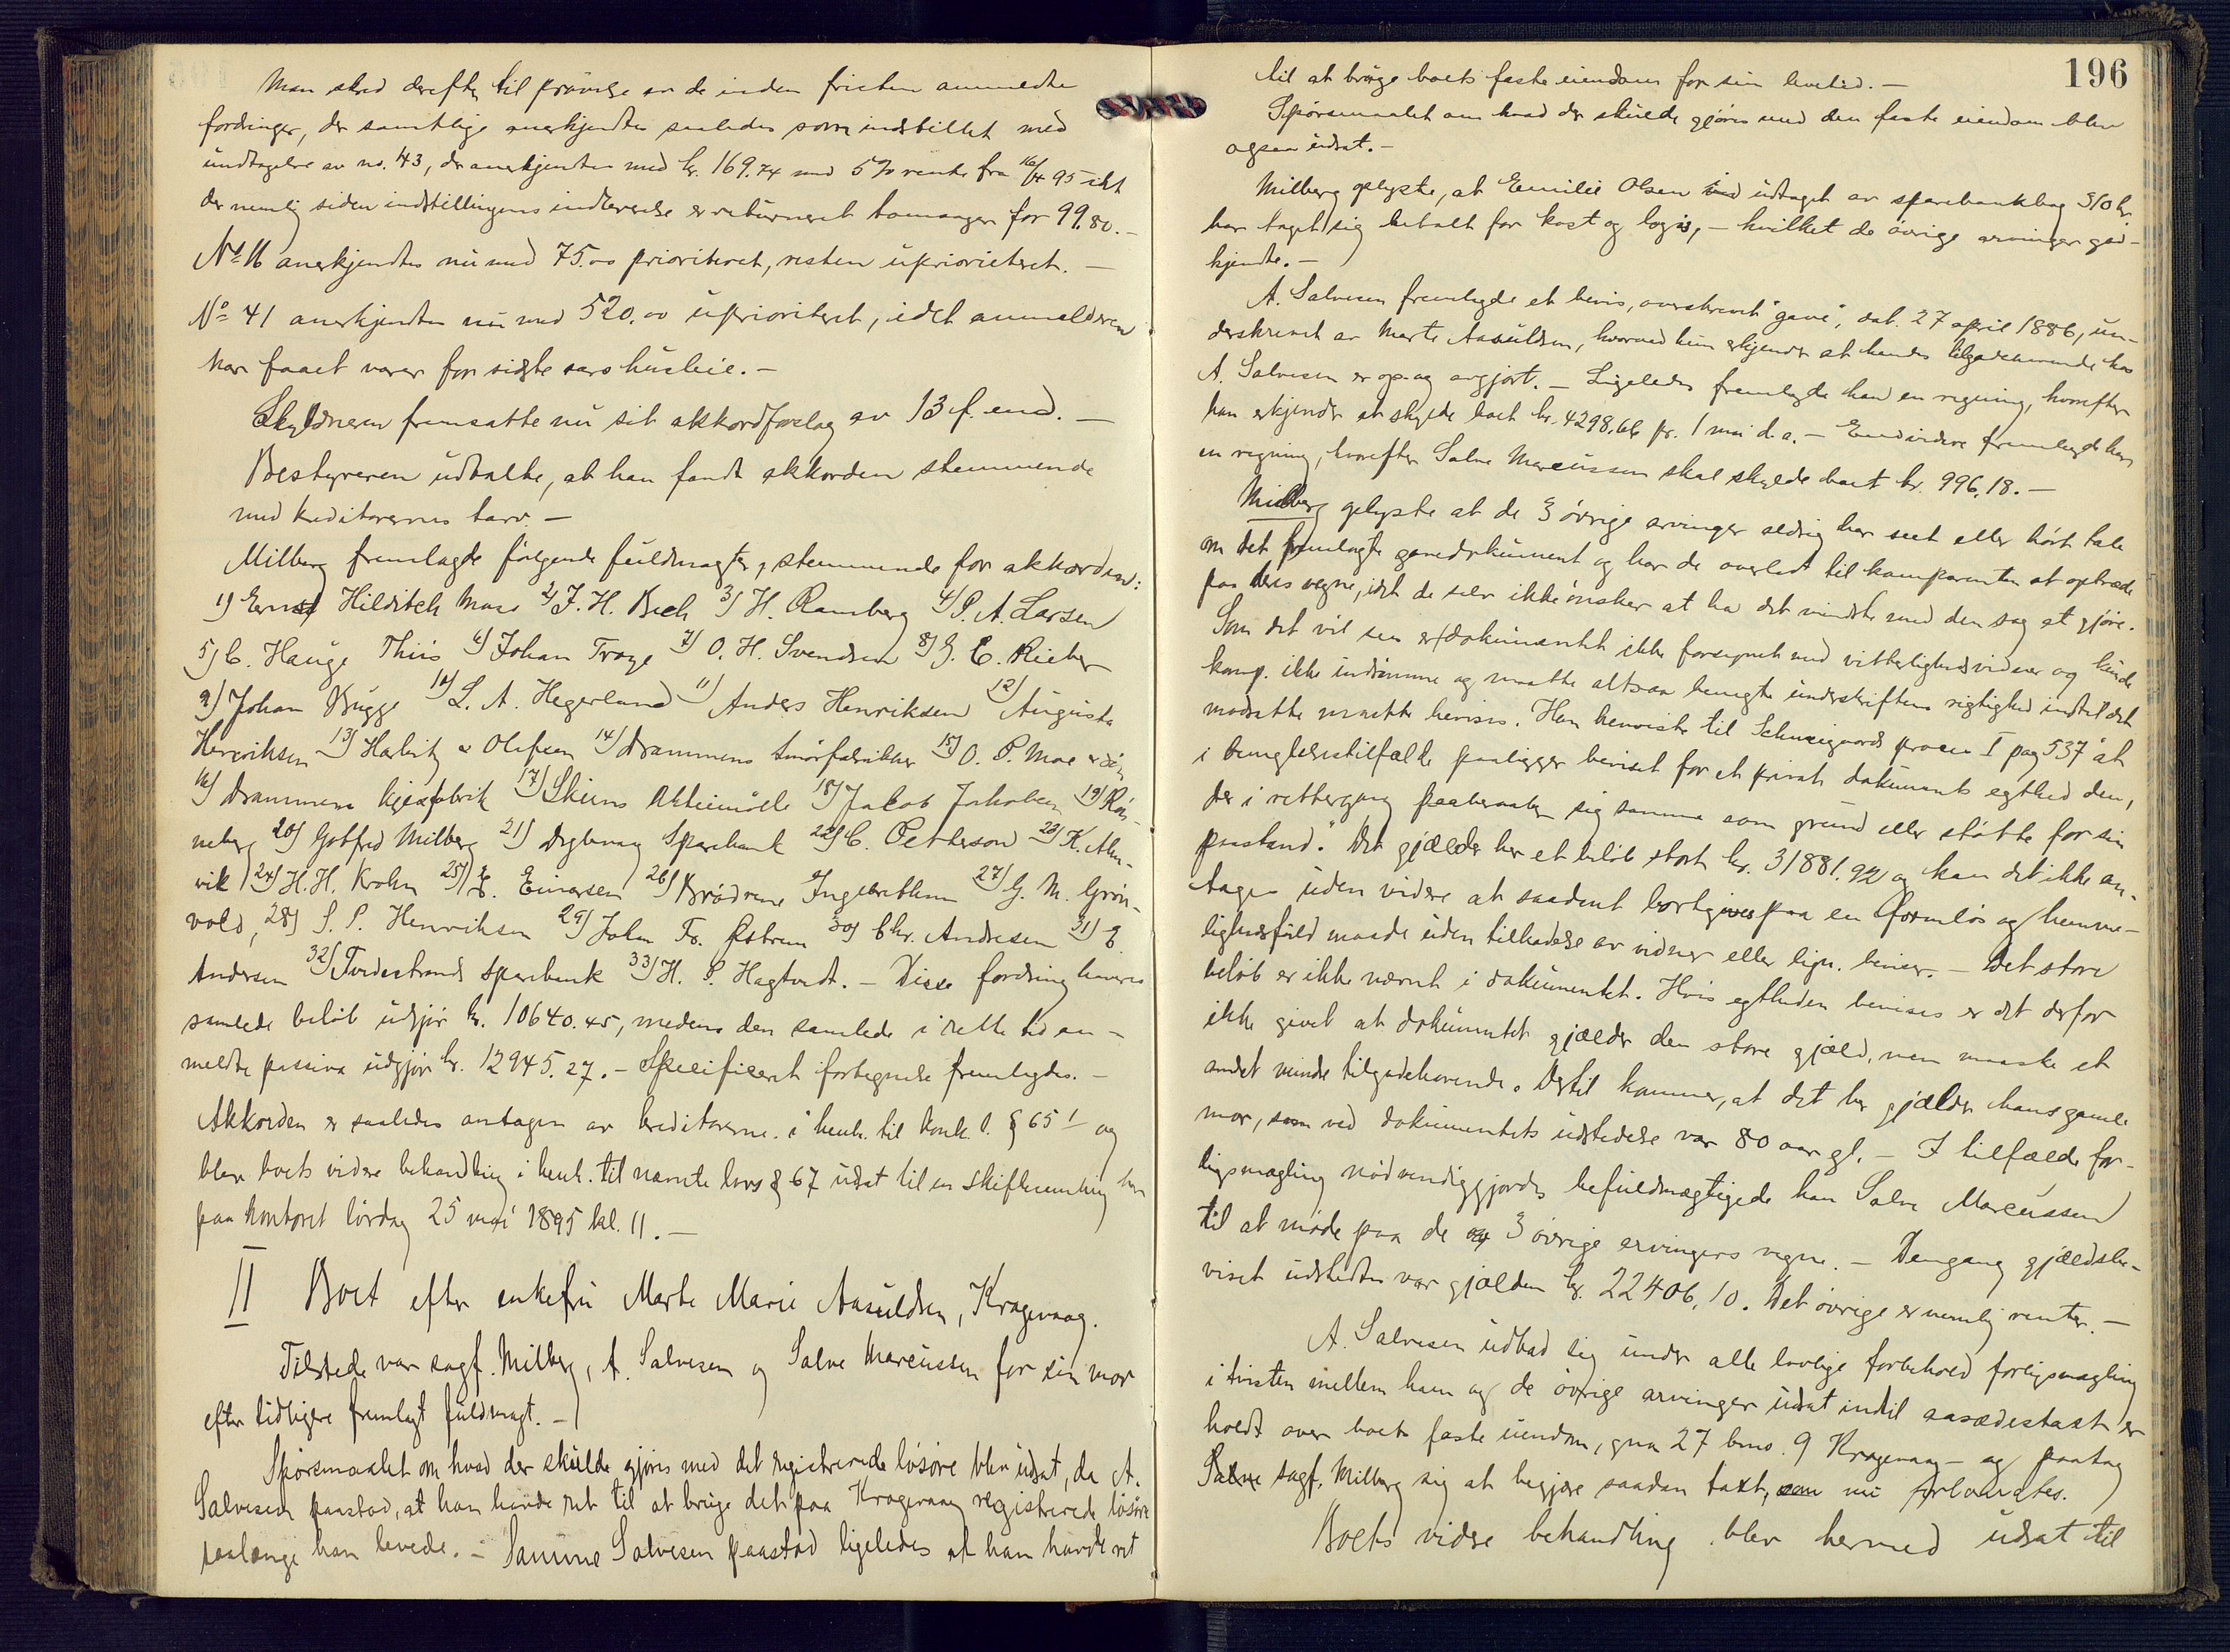 Man skred derefter til prøvelse av de inden fristen anmeldte
fordringer, der samtlige anerkjendtes saaledes som indstillet med
undtagelse av no. 43, der anerkjentes med kr. 169.74 med 5% rente fra 16/4 95 idet
der nemlig siden indstillingens indleverelse er returneret tomanger for 99.80.-
No 16 anerkjendtes nu med 75.00 prioriteret, resten uprioriteret. -
No 41 anerkjendtes nu med 520.00 uprioriteret, idet anmelderen
har faaet varer for sidste aars husleie. -
Skyldneren fremsatte nu sit akkordforslag av 13 f. end. -
Bestyreren udtalte, at han fandt akkorden stemmende
med kreditorernes tarv. -
Milberg fremlagde følgende fuldmagter, stemmende for akkorden:
1) Ernst Hilditch Maas 2) J. H. Bech 3) H. Ramberg 4) P. A. Larsen
5) C. Hauge Thiis 6) Johan Troye 7) O. H. Svendsen 8) G. C. Rieber
9) Johan Bugge 10) L. A. Hegerland 11) Anders Henriksen 12) Augusta
Henriksen 13) Harbitz & Olefsen 14) Drammens smørfabrikker 15) O. P. Moe & søn
16) Drammens kjexfabrik 17) Skiens Aktiemølle 18) Jakob Jakobsen 19) Røn-
neberg 20) Gotfred Milberg 21) Dybvaag Sparebank 22) C. Petterson 23) K. Alm-
vik 24) H. H. Krohn 25) E. Einersen 26) Brødrene Ingebrethsen 27) G. M. Grøn-
vold, 28) S. P. Henriksen 29) John Fr. Østrem 30) Chr. Andresen 31) E.
Andersen 32) Tvedestrands Sparebank 33) H. P. Hagtvedt. - Disse fordringshaveres
samlede beløb udgjør kr. 10640.45, medens den samlede i rette tid an-
meldte passiva udgjør kr. 12945.27. - Specificeret fortegnelse fremlagdes. -
Akkorden er saaledes antagen av kreditorerne i henh. til konk. l. § 65 1 og
blev boets videre behandling i henh. til nævnte lovs § 67 udsat til en skiftesamling her
paa kontoret lørdag 25 mai 1895 kl. 11. -
II Boet efter enkefru Marte Marie Aasuldsen, Kragevaag.
Tilstede var sagf. Milberg, A. Salvesen og Salve Marcussen for sin mor
efter tidligere fremlagt fuldmagt. -
Spørsmaalet om hvad der skulde gjøres med det registrerede løsøre blev udsat, da A.
Salvesen paastod, at han havde ret til at bruge det paa Kragevaag registrerede løsøre
saalænge han levede. - Samme Salvesen paastod ligeledes at han havde ret
196
til at bruge boets faste eiendom for sin levetid. -
Spørsmaalet om hvad der skulde gjøres med den faste eiendom blev
ogsaa udsat. -
Milberg oplyste, at Emilie Olsen ved udtaget av sparebankbog 310 kr.
har taget sig betalt for kost og logis, - hvilket de øvrige arvinger god-
kjendte. -
A. Salvesen fremlagde et bevis, overskrevet "gave", dat. 27 april 1886, un-
derskrevet av Marte Aasuldsen, hvorved hun erkjender at hendes tilgodehavende hos
A. Salvesen er op- og avgjort. - Ligeledes fremlagde han en regning, hvorefter
han erkjender at skylde boet kr. 4298.66 pr. 1 mai d.a. - Endvidere fremlagde han
en regning, hvorefter Salve Marcussen skal skylde boet kr. 996.18. -
Milberg oplyste at de 3 øvrige arvinger aldrig har seet eller hørt tale
om det fremlagte gavedokument og har de overladt til komparenten at optræde
paa deres vegne, idet de selv ikke ønsker at ha det mindste med den sag at gjøre.
Som det vil sees er dokumentet ikke forsynet med vitterlighedsvidner og kunde
komp. ikke indrømme og maatte altsaa benegte underskriftens rigtighed indtil det
modsatte maatte bevises. Han henviste til Schweigaards proces I pag 537 "at
i benegtelsestilfælde paaligger beviset for et privat dokuments egthed den,
der i rettergang paaberaaber sig samme som grund eller støtte for sin
paastand." Det gjælder her et beløb stort kr. 31881.92 og kan det ikke an-
tages uden videre at saadant bortgives paa en formløs og hemme-
lighedsfuld maade uden tilkaldelse av vidner eller lign. beviser. - Det store
beløb er ikke nævnt i dokumentet. Hvis egtheden bevises er det derfor
ikke givet at dokumentet gjælder den store gjæld, men maaske et
andet mindre tilgodehavende. Dertil kommer, at det her gjælder hans gamle
mor, som ved dokumentets udstedelse var 80 aar gl. - I tilfælde for-
ligsmægling nødvendiggjordes befuldmægtigede han Salve Marcussen
til at møde paa de 3 øvrige arvingers vegne. - Dengang gjældsbe-
viset udstedtes var gjælden kr. 22406.10. Det øvrige er nemlig renter. -
A. Salvesen udbad sig under alle lovlige forbehold forligsmægling
i tvisten mellem ham og de øvrige arvinger udsat indtil aasædestaxt er
holdt over boets faste eiendom, gno 27 bno. 9 Kragevaag - og paatog
sagf. Milberg sig at begjære saadan taxt, som nu forlangtes.
Boets videre behandling blev hermed udsat til